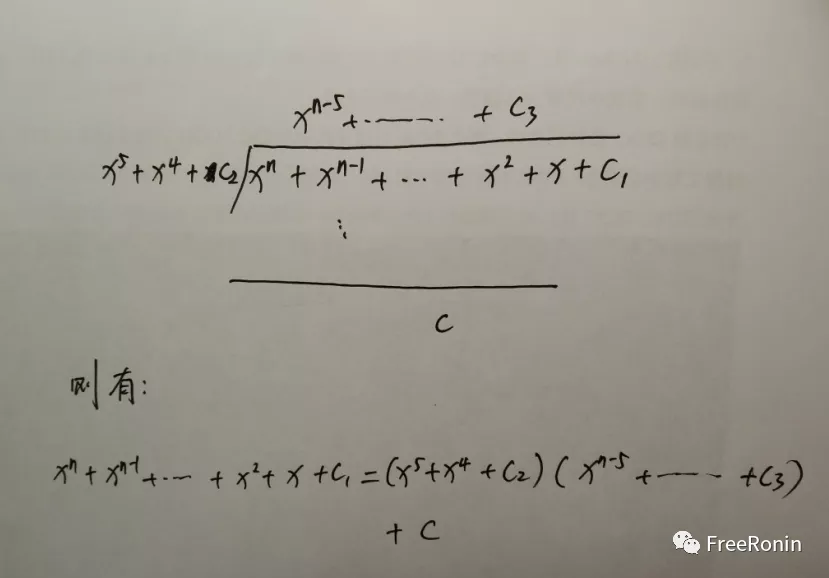 xⁿ⁻⁵ + ...... + C₃
x⁵ + x⁴ + C₂ / xⁿ + xⁿ⁻¹ + ... + x² + x + C₁
⋮
C
则有:
xⁿ + xⁿ⁻¹ + ... + x² + x + C₁ = (x⁵ + x⁴ + C₂) ( xⁿ⁻⁵ + ...... + C₃)
+ C
FreeRonin